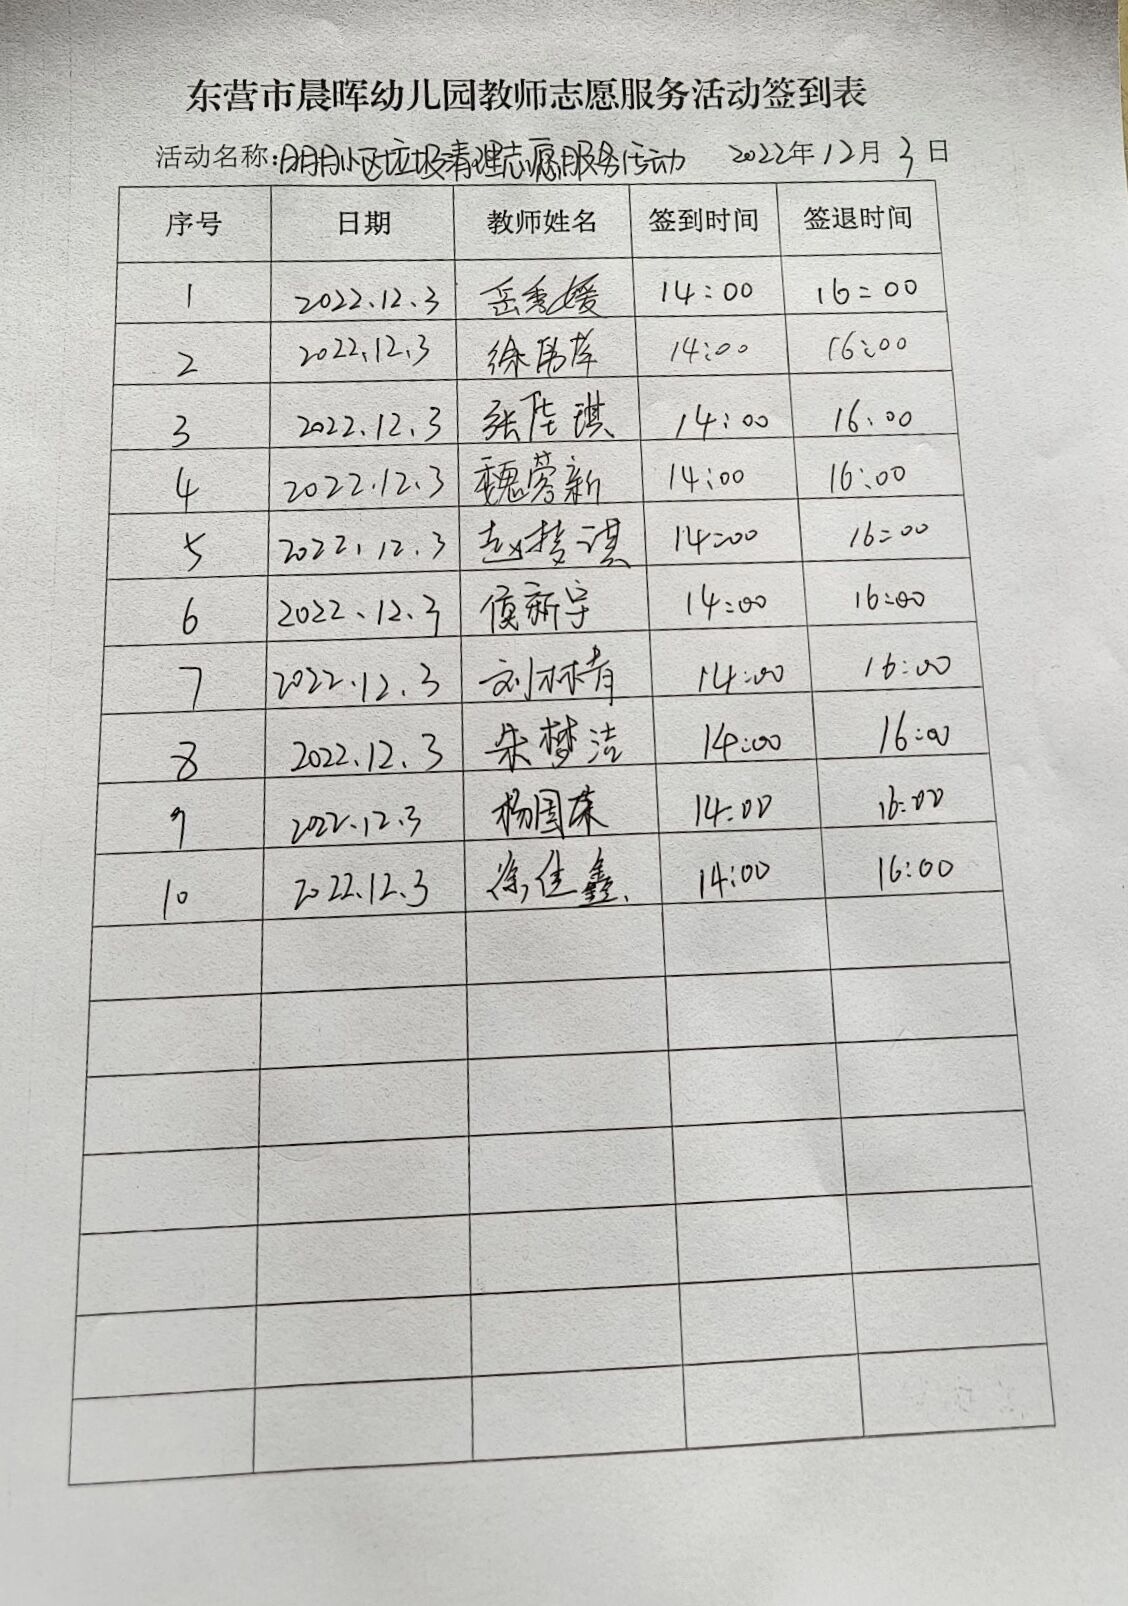 东营市晨晖幼儿园教师志愿服务活动签到表
活动名称:明月小区垃圾清理志愿服务活动 2022年12月3日
序号 日期 教师姓名 签到时间 签退时间
1 2022.12.3 岳秀媛 14:00 16:00
2 2022.12.3 徐 14:00 16:00
3 2022.12.3 张陆琪 14:00 16:00
4 2022.12.3 魏蓉新 14:00 16:00
5 2022.12.3 赵梦琪 14:00 16:00
6 2022.12.3 侯新宇 14:00 16:00
7 2022.12.3 刘林青 14:00 16:00
8 2022.12.3 朱梦洁 14:00 16:00
9 2022.12.3 杨国荣 14:00 16:00
10 2022.12.3 徐佳鑫 14:00 16:00